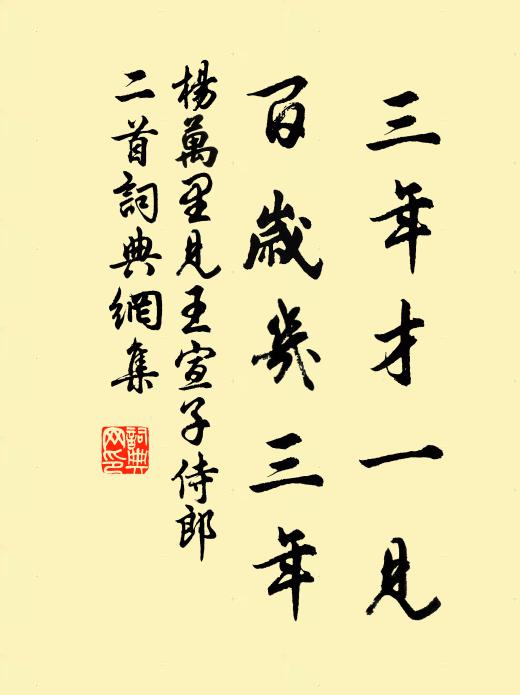 三年才一見
百歲幾三年
楊萬里見王宣子侍郎
二首詞典網集
詞典
网印